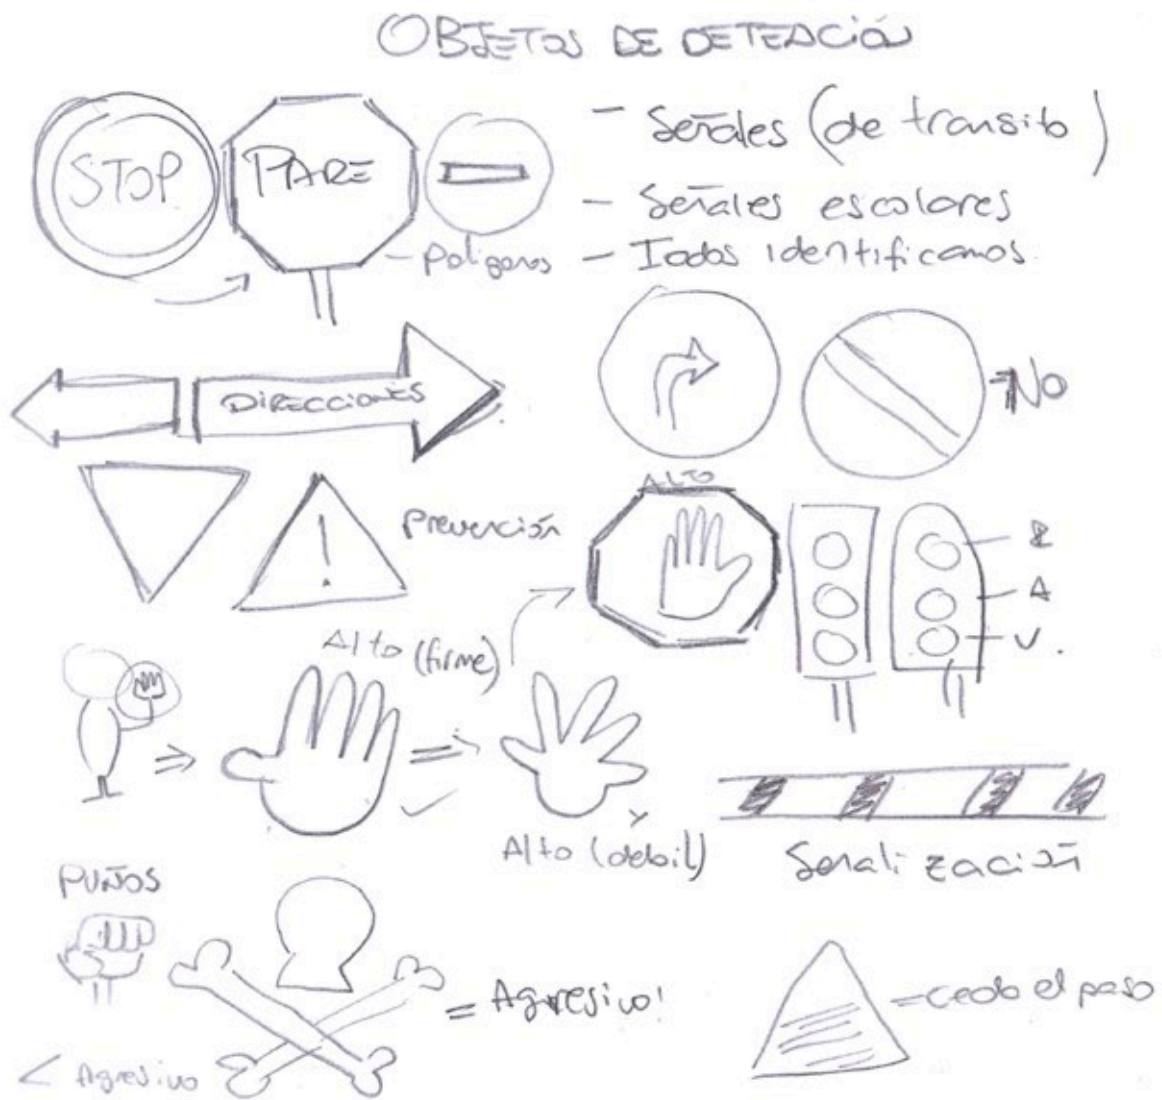 OBJETOS DE DETENCIÓN
STOP
PARE
- Señales (de transito)
- Señales escolares
- Poligonos
- Todos identificamos.
DIRECCIONES
NO
Prevención
ALTO
R
A
V.
Alto (firme)
Alto (debil)
Señalización
PUÑOS
= Agresivo!
= cedo el paso
< Agresivo